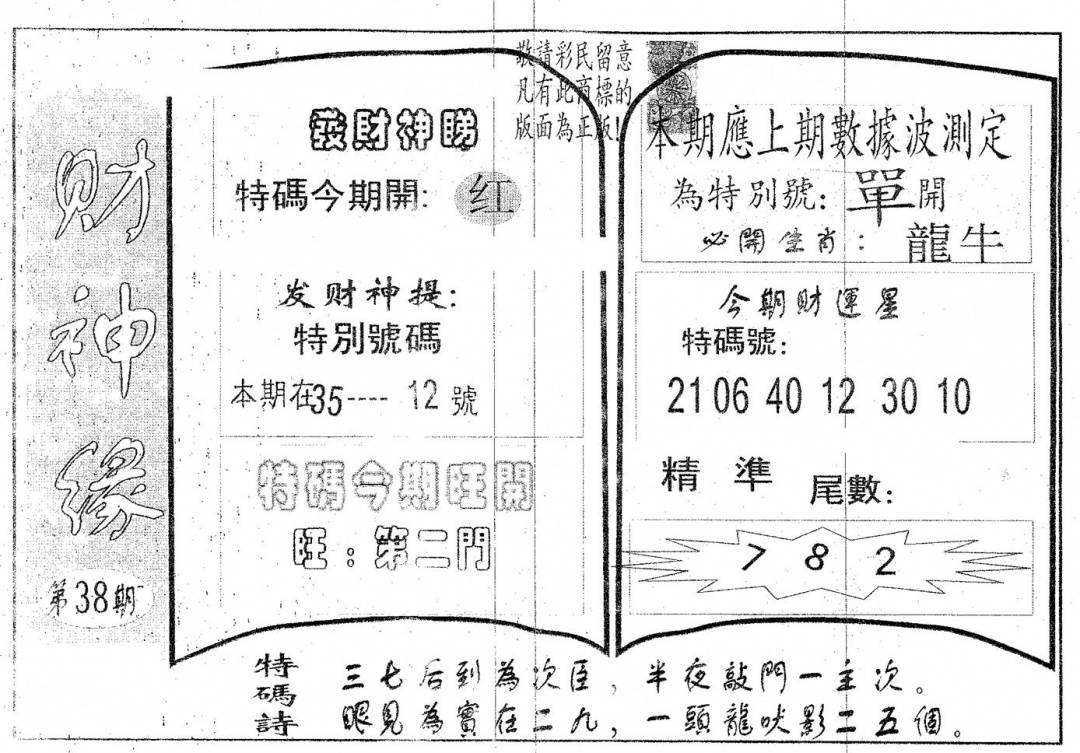 敬請彩民留意
凡有此商標的
版面為正版!
财神緣
第38期
發財神睇
特碼今期開: 红
发财神提:
特別號碼
本期在35---- 12號
特碼今期旺開
旺:第二門
本期應上期數據波測定
為特別號: 單開
必開生肖: 龍牛
今期财運星
特碼號:
21 06 40 12 30 10
精準 尾數:
7 8 2
特碼詩
三七后到為次臣,半夜敲門一主次。
眼見為實在二九,一頭龍吠影二五個。